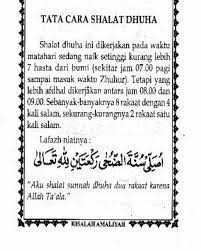 TATA CARA SHALAT DHUHA
Shalat dhuha ini dikerjakan pada waktu
matahari sedang naik setinggi kurang lebih
7 hasta dari bumi (sekitar jam 07.00 pagi
sampai masuk waktu Zhuhur). Tetapi yang
lebih afdhal dikerjakan antara jam 08.00 dan
09.00. Sebanyak-banyaknya 8 rakaat dengan 4
kali salam, sekurang-kurangnya 2 rakaat satu
kali salam.
Lafazh niatnya :
اُصَلِّى سُنَّةَ الضُّحٰى رَكْعَتَيْنِ لِلّٰهِ تَعَالٰى
"Aku shalat sunnah dhuha dua rakaat karena
Allah Ta'ala."
RISALAH AMALIYAH